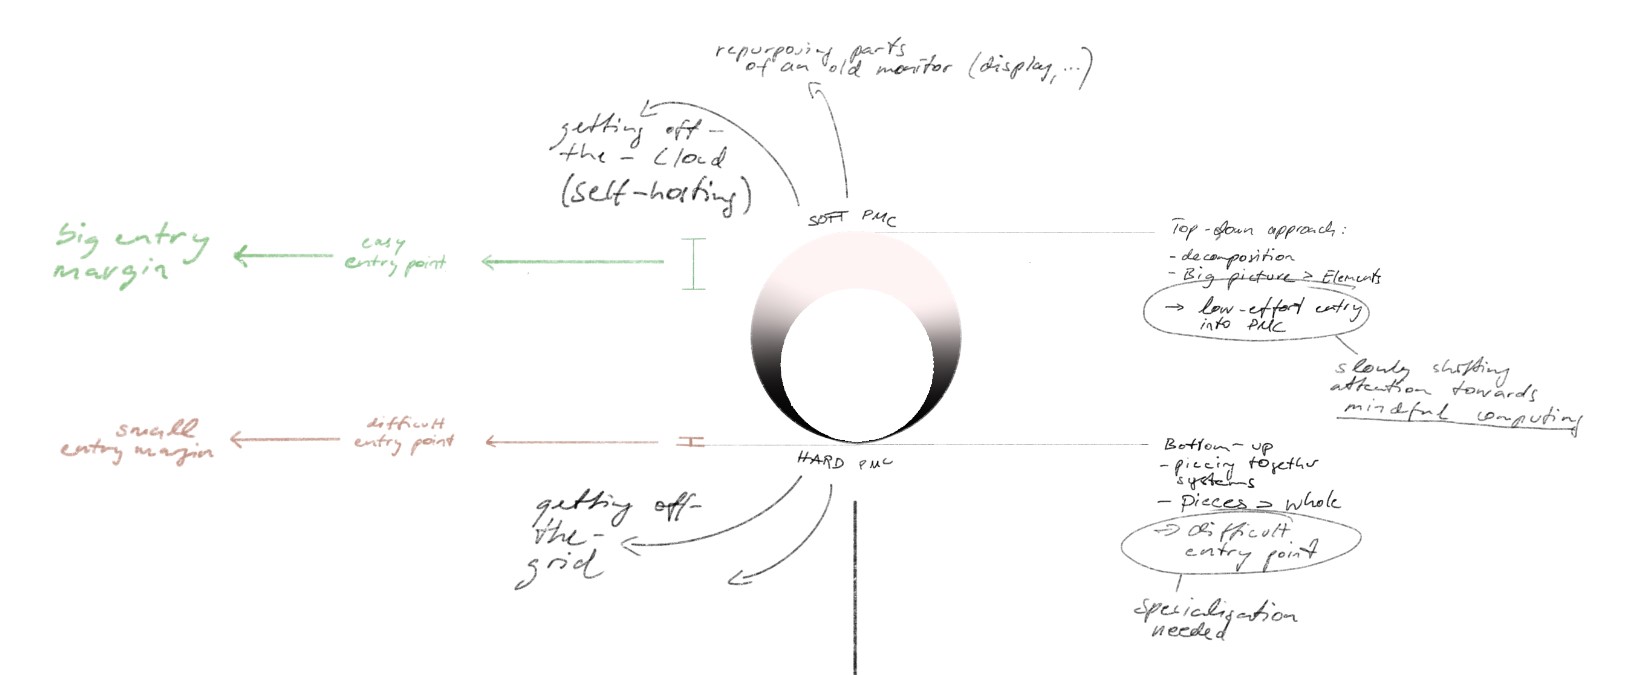 repurposing parts
of an old monitor (display, ...)
getting off-
the-cloud
(self-hosting)
SOFT PMC
big entry
margin
easy
entry point
Top-down approach:
- decomposition
- Big picture > Elements
→ low-effort entry
into PMC
slowly shifting
attention towards
mindful computing
small
entry margin
difficult
entry point
HARD PMC
Bottom-up
- piecing together
systems
- pieces > whole
→ difficult
entry point
specialization
needed
getting off-
the-
grid